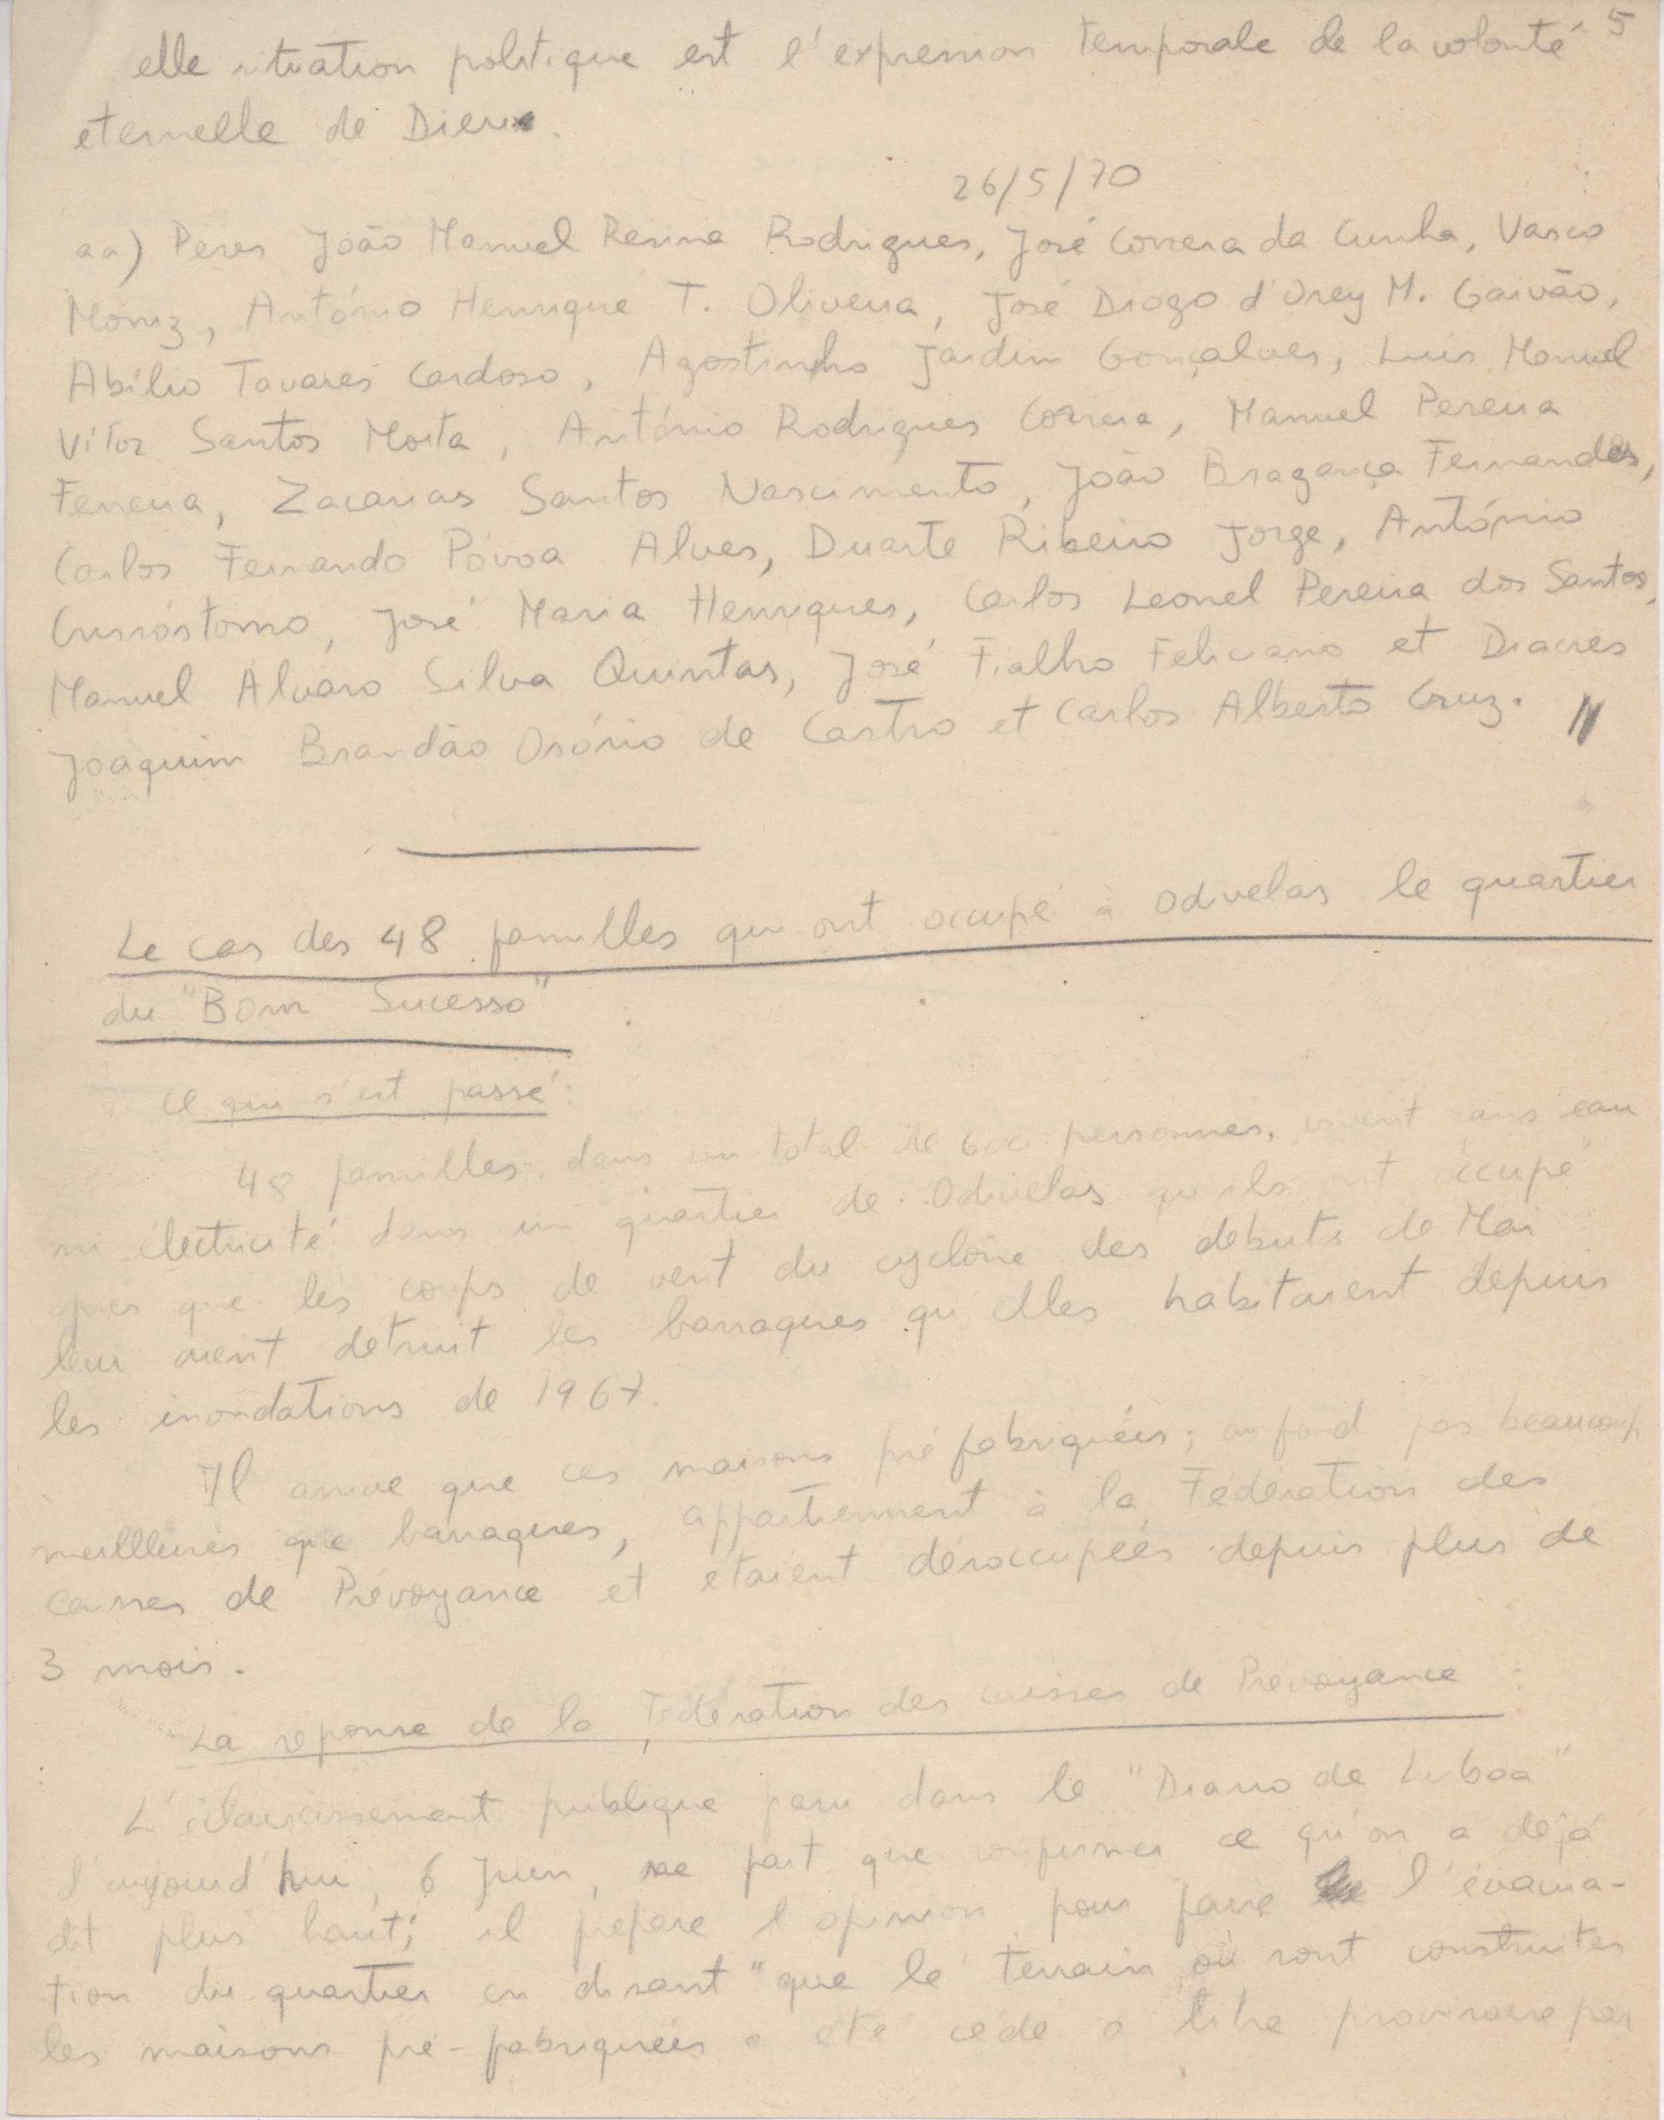 5
elle situation politique est l'expression temporale de la volonté
eternelle de Dieu.
26/5/70
aa) Peres João Manuel Resina Rodrigues, José Correia da Cunha, Vasco
Moniz, António Henrique T. Oliveira, José Diogo d'Orey M. Gaivão,
Abílio Tavares Cardoso, Agostinho Jardim Gonçalves, Luis Manuel
Vítor Santos Moita, António Rodrigues Correia, Manuel Pereira
Ferreira, Zacarias Santos Nascimento, João Bragança Fernandes,
Carlos Fernando Póvoa Alves, Duarte Ribeiro Jorge, António
Crisóstomo, José Maria Henriques, Carlos Leonel Pereira dos Santos,
Manuel Álvaro Silva Quintas, José Fialho Feliciano et Diacres
Joaquim Brandão Osório de Castro et Carlos Alberto Cruz. //
Le cas des 48 familles qui ont occupé à Odivelas le quartier
du "Bom Sucesso"
Ce qui s'est passé:
48 familles, dans un total de 600 personnes, vivent sans eau
ni électricité dans un quartier de Odivelas qu'ils ont occupé
après que les coups de vent du cyclone des debuts de Mai
leur aient detruit les barraques qu'elles habitaient depuis
les inondations de 1967.
Il arrive que ces maisons préfabriquées, au fond pas beaucoup
meilleures que barraques, appartiennent à la Fédération des
caisses de Prévoyance et etaient désoccupées depuis plus de
3 mois.
La reponse de la Fédération des caisses de Prevoyance:
L'éclaircissement publique paru dans le "Diario de Lisboa"
d'aujourd'hui, 6 Juin, ne fait que confirmer ce qu'on a déjá
dit plus haut; il prepare l'opinion pour faire l'évacua-
tion du quartier en disant "que le terrain où sont construites
les maisons pré-fabriquées a eté cedé a titre provisoire par